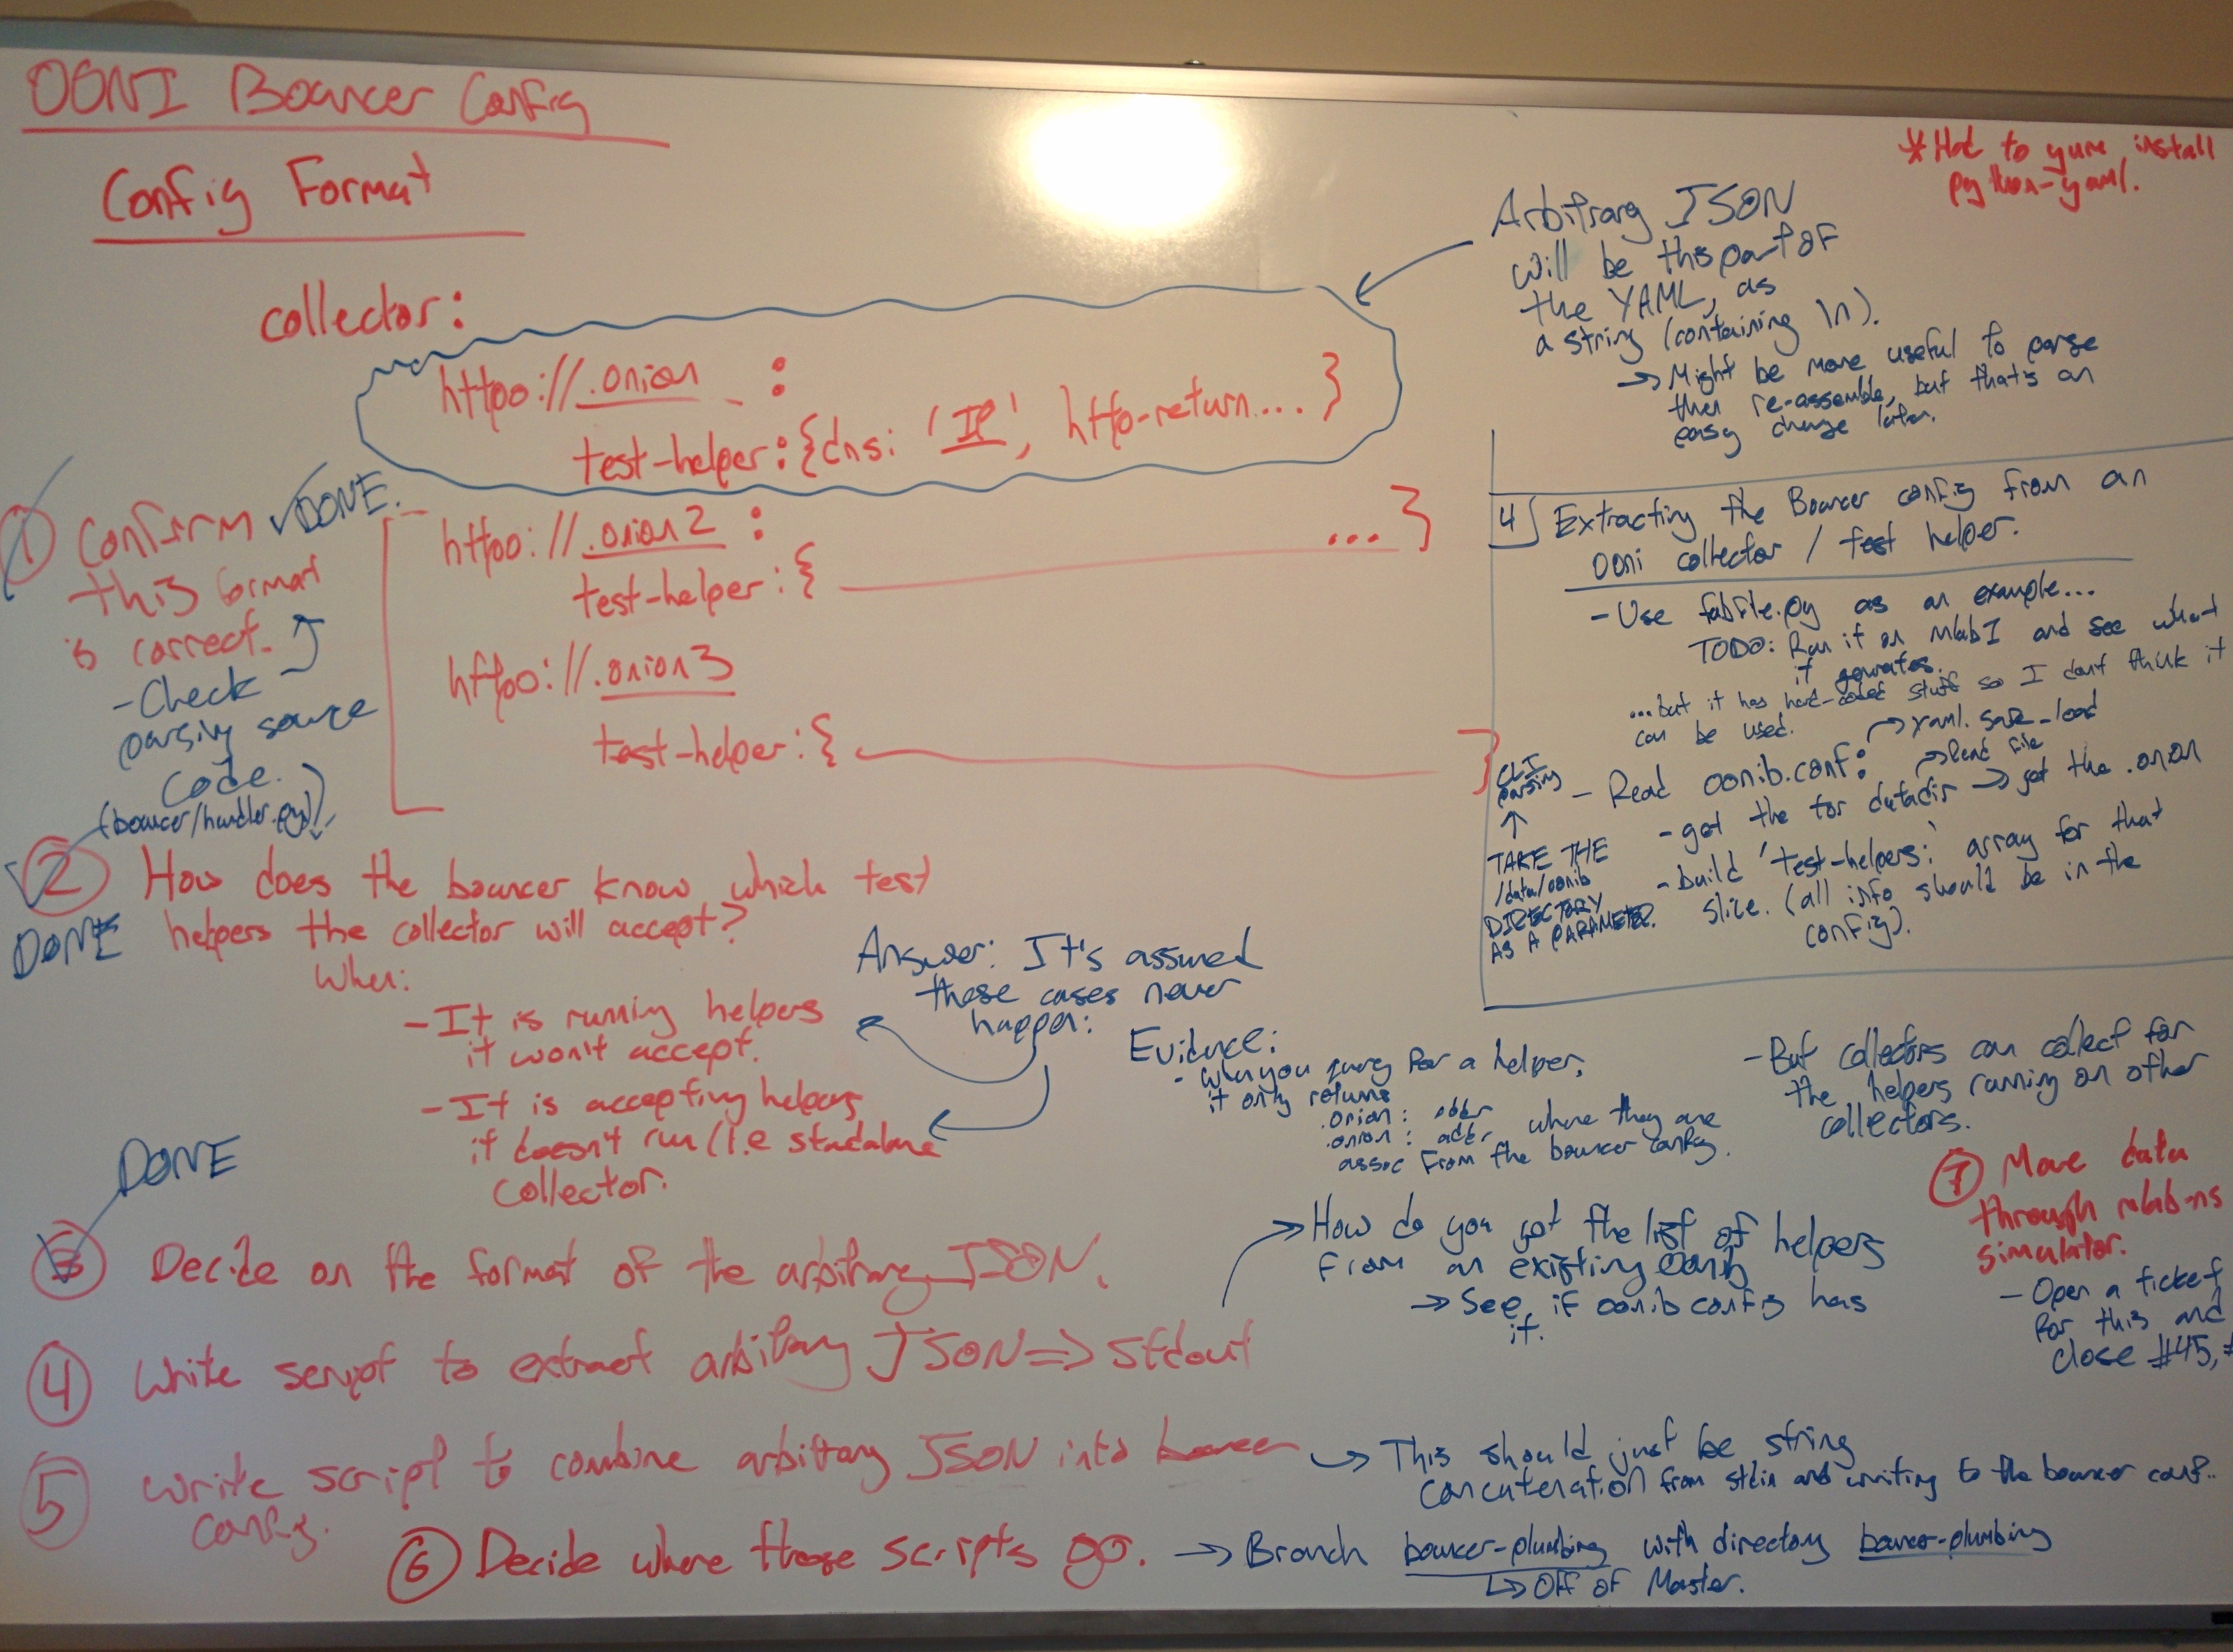 OONI Bouncer Config
Config Format
* Had to yum install
python-yaml.
collector:
httpo://.onion :
test-helper:{dns: 'IP', http-return.... }
httpo://.onion2 :
test-helper:{ ... }
httpo://.onion3
test-helper:{ }
Arbitrary JSON
will be this part of
the YAML, as
a string (containing \n).
→ Might be more useful to parse
then re-assemble, but that's an
easy change later.
① Confirm ✓DONE.
this format
is correct.
- Check
parsing source
code.
(bouncer/handler.py)
② How does the bouncer know which test
DONE
helpers the collector will accept?
When:
- It is running helpers
it won't accept.
- It is accepting helpers
it doesn't run (I.e standalone
collector.
Answer: It's assumed
these cases never
happen:
Evidence:
- when you query for a helper,
it only returns
.onion: addr
.onion: addr where they are
assoc from the bouncer config.
- But collectors can collect for
the helpers running on other
collectors.
4 Extracting the Bouncer config from an
ooni collector / test helper.
- Use fabfile.py as an example...
TODO: Run it on mlab1 and see what
it generates.
...but it has hard-coded stuff so I don't think it
can be used.
- Read oonib.conf: → yaml.safe_load
→ Read file
- get the tor datadir → get the .onion
- build 'test-helpers:' array for that
slice. (all info should be in the
config).
CLI
parsing
↑
TAKE THE
/data/oonib
DIRECTORY
AS A PARAMETER.
DONE
③ Decide on the format of the arbitrary JSON.
④ Write script to extract arbitrary JSON => stdout
→ How do you get the list of helpers
from an existing oonib
→ See if oonib config has
it.
⑤ Write script to combine arbitrary JSON into bouncer
config.
→ This should just be string
concatenation from stdin and writing to the bouncer conf..
⑥ Decide where these scripts go. → Branch bouncer-plumbing with directory bouncer-plumbing
↳ Off of Master.
⑦ Move data
through mlab-ns
simulator.
- Open a ticket
for this and
close #45, #